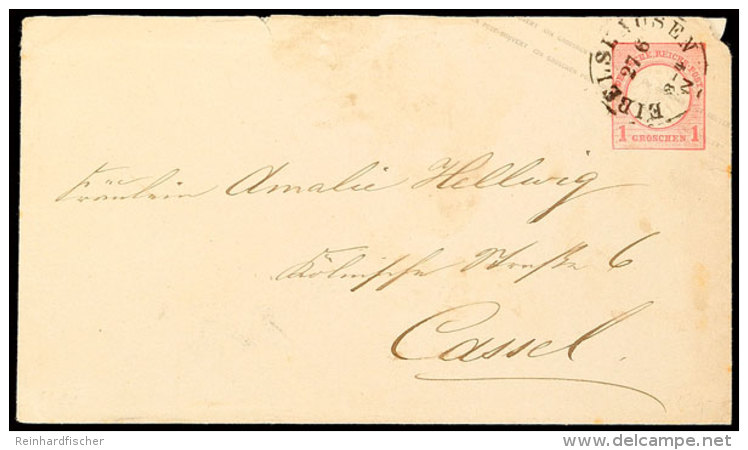 EIBELSHAUSEN
27 6
3-4 N
DEUTSCHE REICHS-POST
1 GROSCHEN 1
Fräulein Amalie Hellwig
Kölnische Straße 6
Cassel.
Reinhardfischer
www.delcampe.net